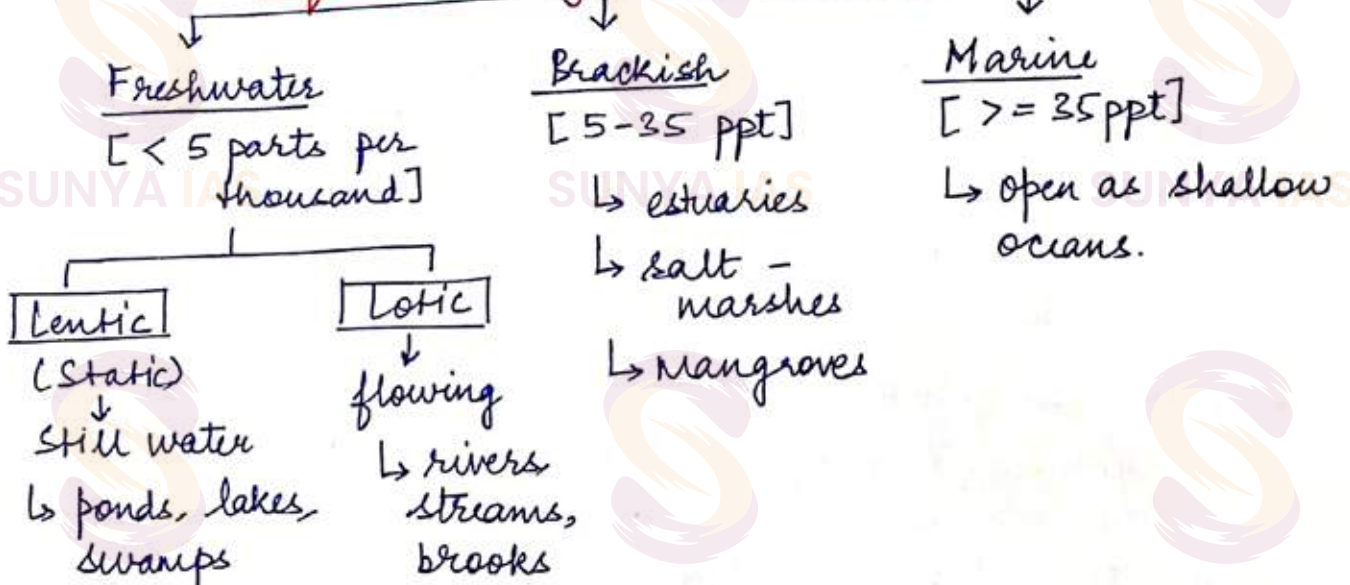 Freshwater
[ < 5 parts per
thousand]
Lentic
(Static)
↓
Still water
↳ ponds, lakes,
swamps
Lotic
↓
flowing
↳ rivers
streams,
brooks
Brackish
[ 5-35 ppt]
↳ estuaries
↳ salt -
marshes
↳ Mangroves
Marine
[ >= 35 ppt]
↳ open as shallow
oceans.
SUNYA IAS
SUNYA IAS
SUNYA IAS